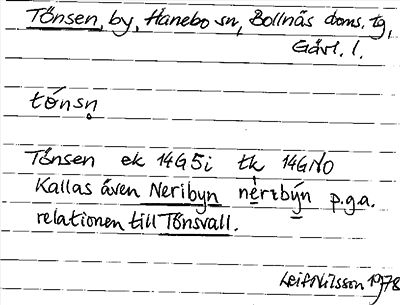 Tönsen, by, Hanebo sn, Bollnäs doms. tg,
Gävl. l.
tö́nsn̥
Tönsen ek 14G5i tk 14GNO
Kallas även Neribyn nèrɩbýn p.g.a.
relationen till Tönsvall.
Leif Nilsson 1978